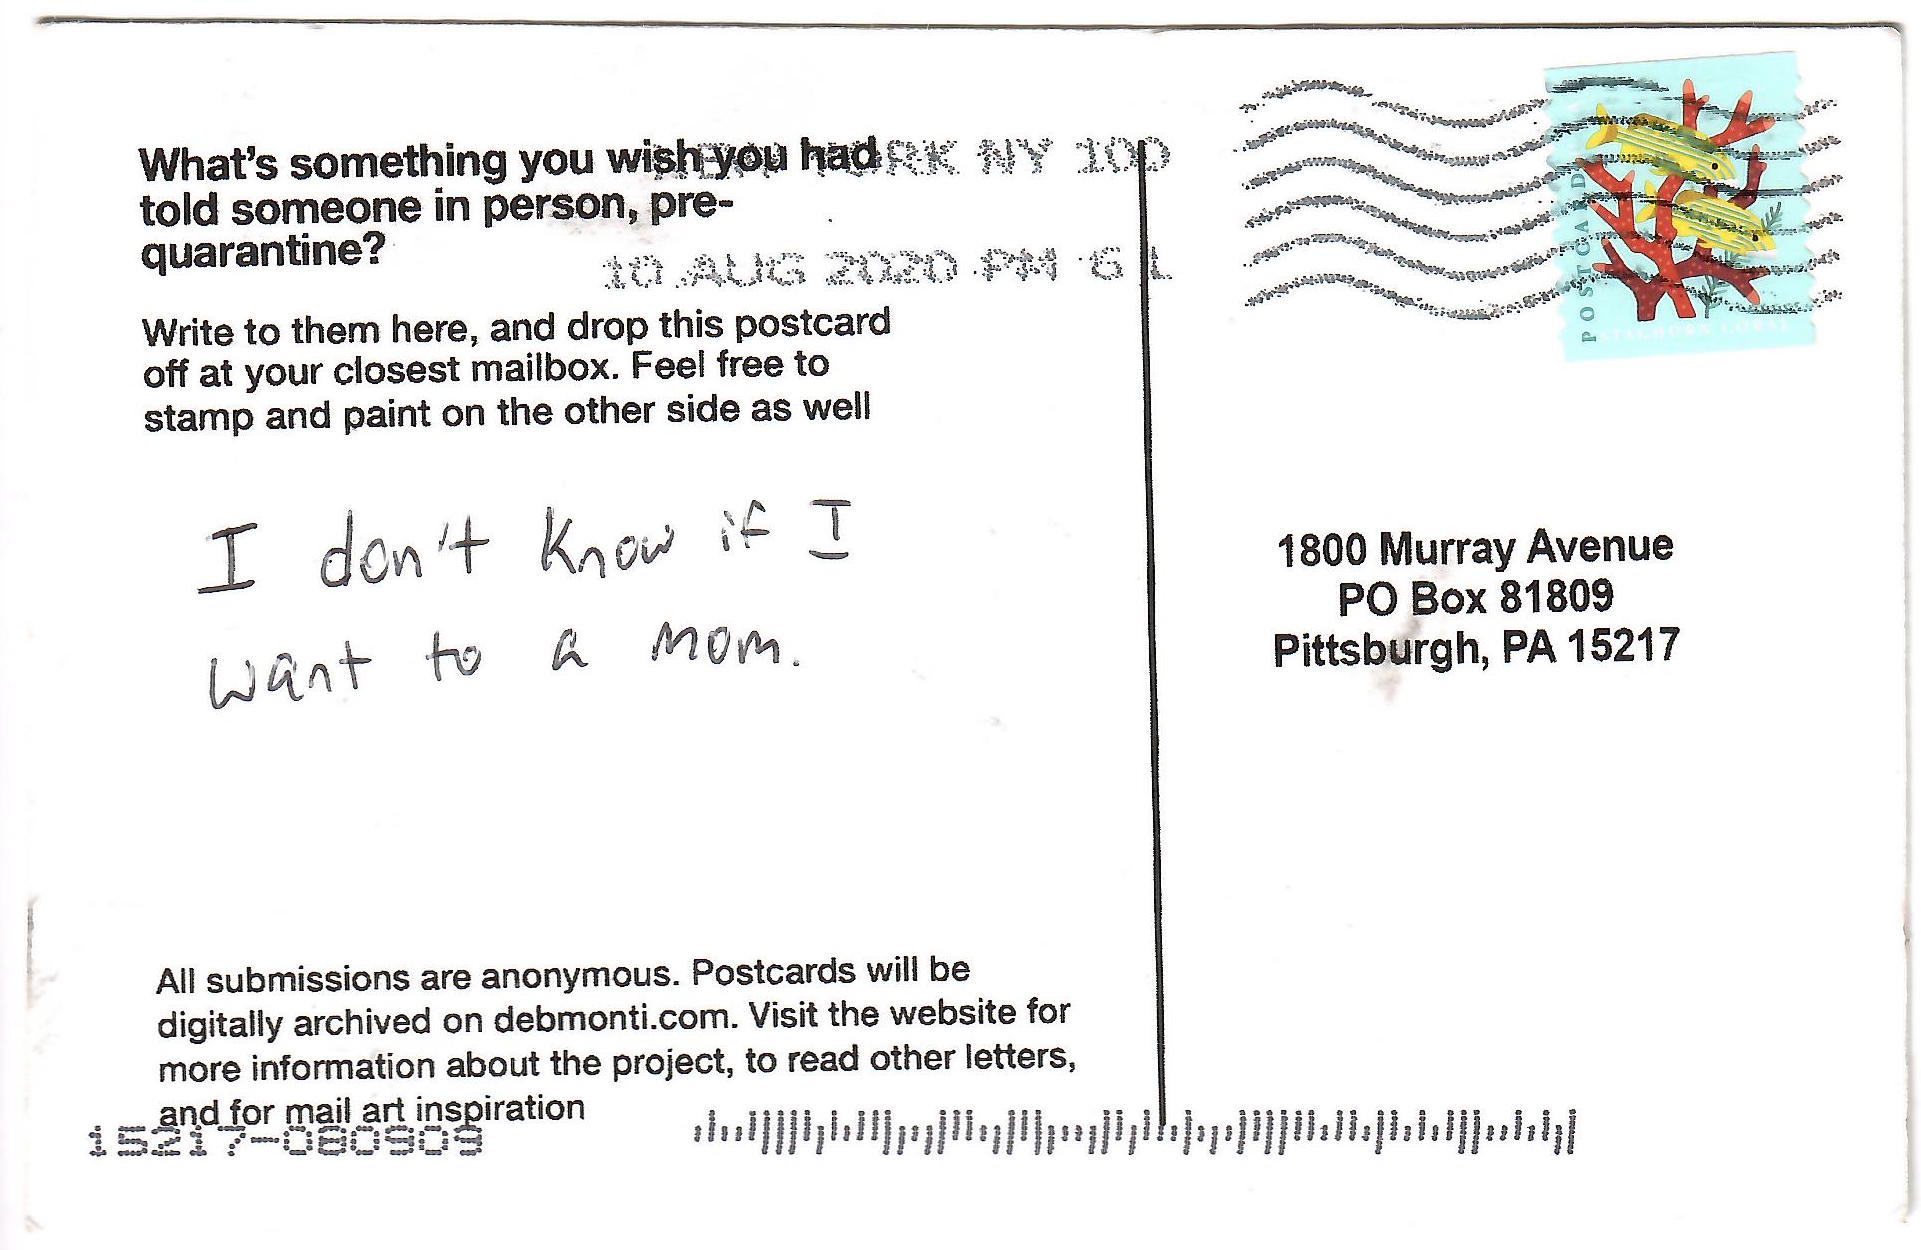 What's something you wish you had
told someone in person, pre-
quarantine?
NEW YORK NY 100
10 AUG 2020 PM 6 L
Write to them here, and drop this postcard
off at your closest mailbox. Feel free to
stamp and paint on the other side as well
I don't know if I
want to a mom.
All submissions are anonymous. Postcards will be
digitally archived on debmonti.com. Visit the website for
more information about the project, to read other letters,
and for mail art inspiration
15217-080909
POSTCARD
STAGHORN CORAL
1800 Murray Avenue
PO Box 81809
Pittsburgh, PA 15217